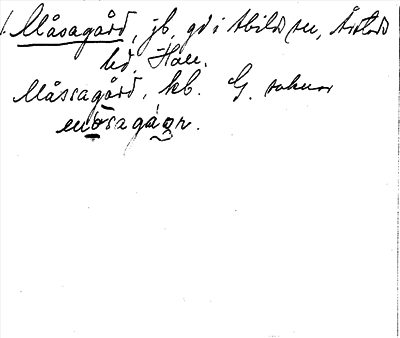 Måsagård, jb, gd i Abilds sn, Årstads
hd, Hall.
Måssagård, kb. G. saknar
mosagáɷr.